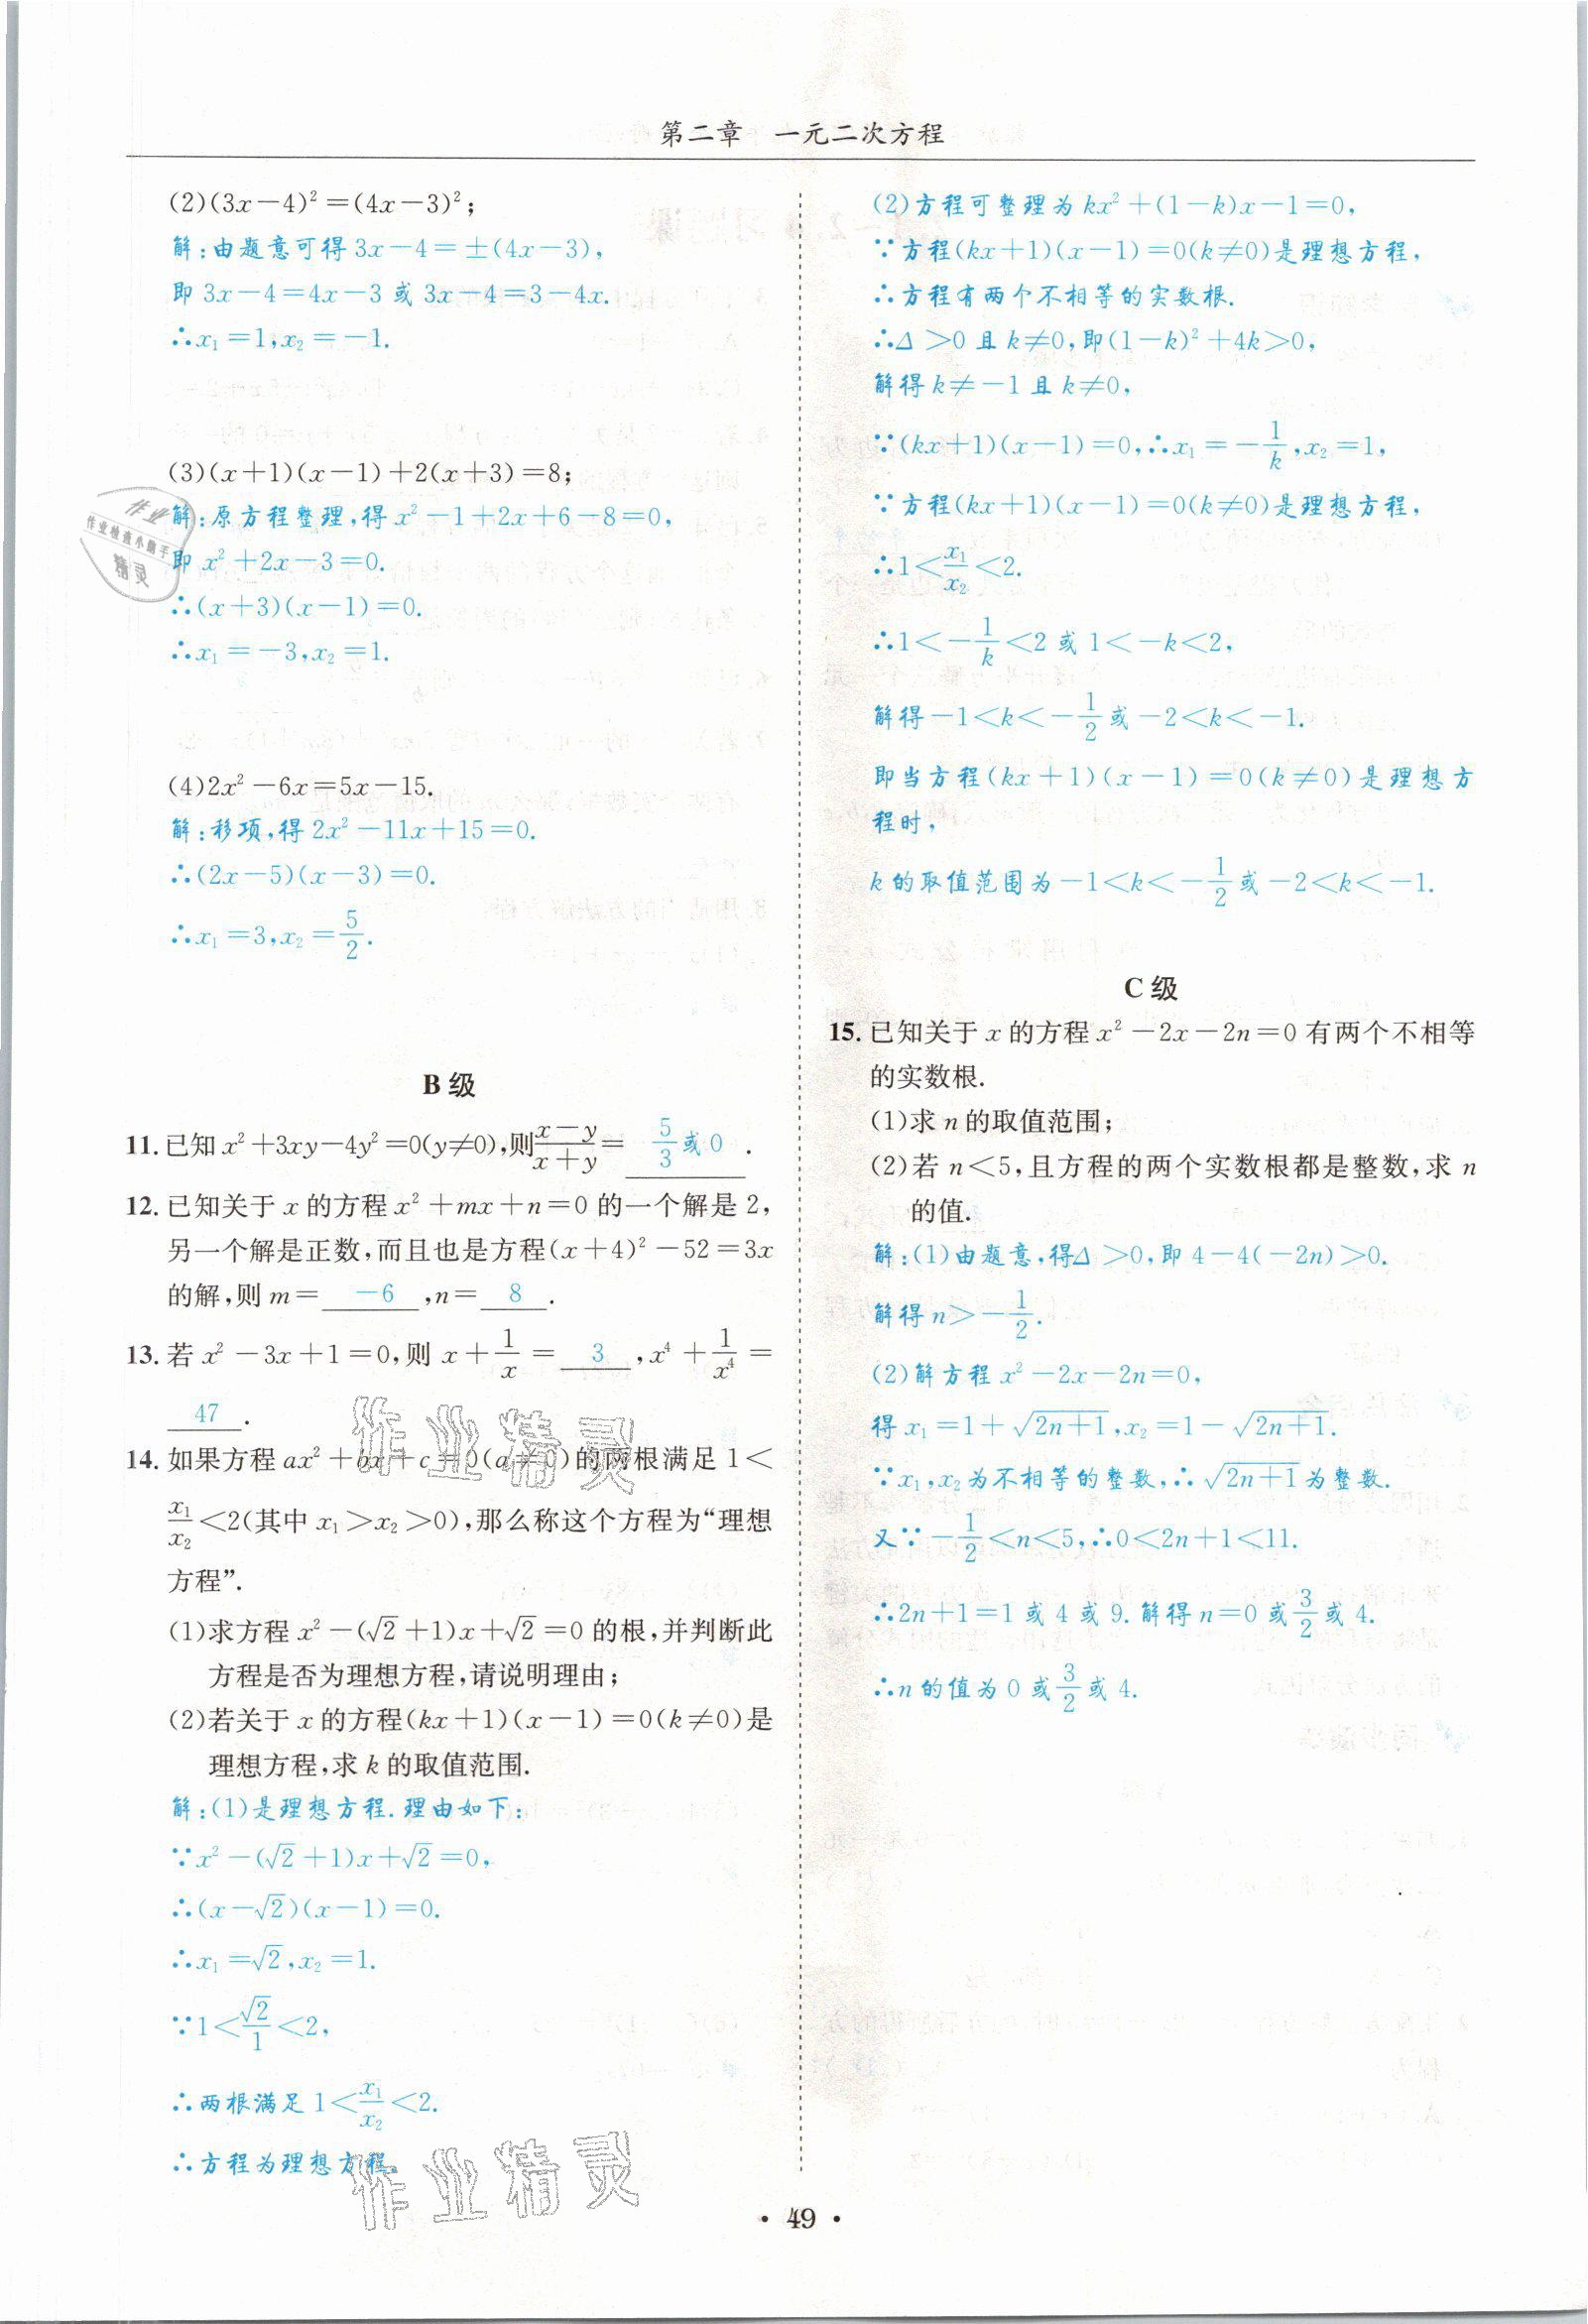 第二章 一元二次方程
(2)(3x-4)²=(4x-3)²;
解:由题意可得3x-4=±(4x-3),
即3x-4=4x-3或3x-4=3-4x.
∴x₁=1,x₂=-1.
(3)(x+1)(x-1)+2(x+3)=8;
解:原方程整理,得x²-1+2x+6-8=0,
即x²+2x-3=0.
∴(x+3)(x-1)=0.
∴x₁=-3,x₂=1.
(4)2x²-6x=5x-15.
解:移项,得2x²-11x+15=0.
∴(2x-5)(x-3)=0.
∴x₁=3,x₂=5/2.
B级
11.已知x²+3xy-4y²=0(y≠0),则(x-y)/(x+y)=5/3或0.
12.已知关于x的方程x²+mx+n=0的一个解是2,
另一个解是正数,而且也是方程(x+4)²-52=3x
的解,则m=-6,n=8.
13.若x²-3x+1=0,则x+1/x=3,x⁴+1/x⁴=
47.
14.如果方程ax²+bx+c=0(a≠0)的两根满足1<
x₁/x₂<2(其中x₁>x₂>0),那么称这个方程为“理想
方程”.
(1)求方程x²-(√2+1)x+√2=0的根,并判断此
方程是否为理想方程,请说明理由;
(2)若关于x的方程(kx+1)(x-1)=0(k≠0)是
理想方程,求k的取值范围.
解:(1)是理想方程.理由如下:
∵x²-(√2+1)x+√2=0,
∴(x-√2)(x-1)=0.
∴x₁=√2,x₂=1.
∵1<√2/1<2,
∴两根满足1<x₁/x₂<2.
∴方程为理想方程.
(2)方程可整理为kx²+(1-k)x-1=0,
∵方程(kx+1)(x-1)=0(k≠0)是理想方程,
∴方程有两个不相等的实数根.
∴Δ>0且k≠0,即(1-k)²+4k>0,
解得k≠-1且k≠0,
∵(kx+1)(x-1)=0,∴x₁=-1/k,x₂=1,
∵方程(kx+1)(x-1)=0(k≠0)是理想方程,
∴1<x₁/x₂<2.
∴1<-1/k<2或1<-k<2,
解得-1<k<-1/2或-2<k<-1.
即当方程(kx+1)(x-1)=0(k≠0)是理想方
程时,
k的取值范围为-1<k<-1/2或-2<k<-1.
C级
15.已知关于x的方程x²-2x-2n=0有两个不相等
的实数根.
(1)求n的取值范围;
(2)若n<5,且方程的两个实数根都是整数,求n
的值.
解:(1)由题意,得Δ>0,即4-4(-2n)>0.
解得n>-1/2.
(2)解方程x²-2x-2n=0,
得x₁=1+√(2n+1),x₂=1-√(2n+1).
∵x₁,x₂为不相等的整数,∴√(2n+1)为整数.
又∵-1/2<n<5,∴0<2n+1<11.
∴2n+1=1或4或9.解得n=0或3/2或4.
∴n的值为0或3/2或4.
· 49 ·
作业
作业检查小助手
精灵
作业精灵
作业精灵